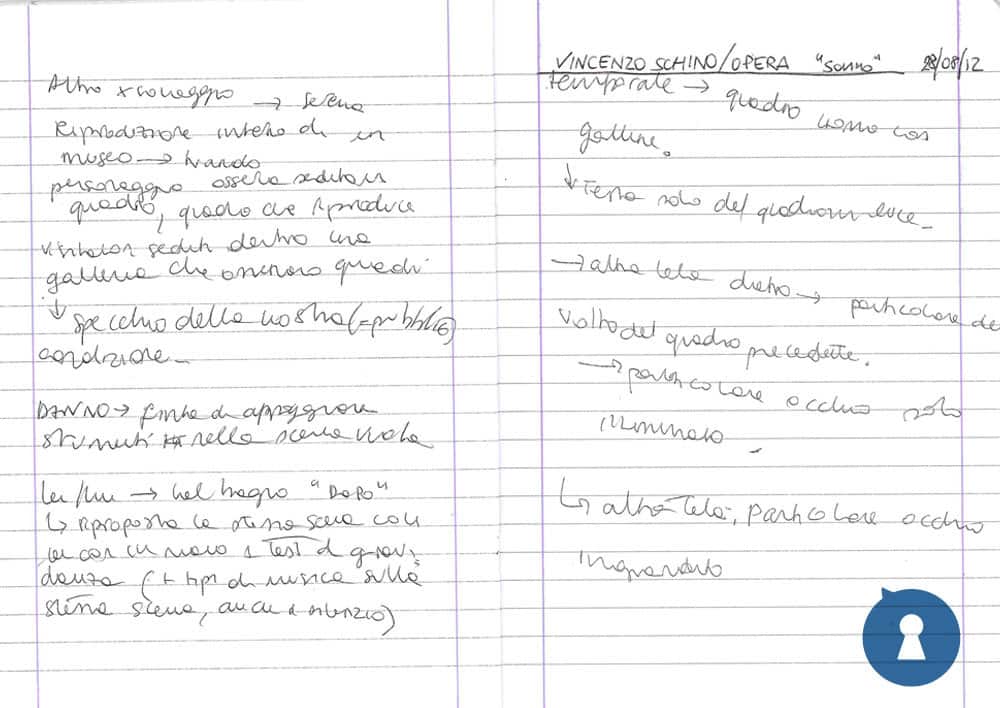 Altro personaggio → serena
Riproduzione interno di un
museo →
personaggio osserva seduta un
quadro, quadro che riproduce
visitatori seduti dentro una
galleria che osservano quadri
↓ specchio della nostra (=pubblico)
condizione_
DANNO → finta di appoggiare
strumenti nella scena vuota
lei/lui → nel bagno "DOPO"
↳ riproposta la stessa scena con
lei con in mano 1 test di gravi
danza (+ tipi di musica sulla
stessa scena, anche silenzio)
VINCENZO SCHINO/OPERA "sonno" 28/08/12
temporale → quadro uomo con
galline.
↓ Testa solo del quadro in luce_
→ altra tela dietro → particolare de
volto del quadro precedente.
→ particolare occhio solo
illuminato
↳ altra Tela, particolare occhio
ingrandito